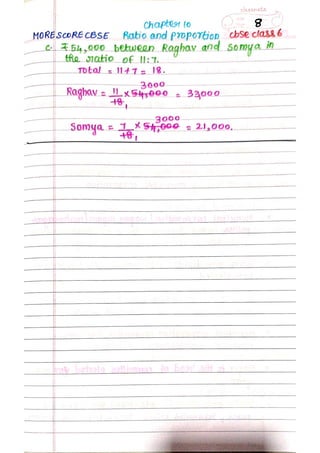 Chapter 10
8
MORESCORECBSE Ratio and proportion cbse class 6
c. ₹54,000 between Raghav and Somya in
the ratio of 11:7.
Total = 11+7 = 18.
3000
Raghav = 11/18 × 54,000 = 33,000
1
3000
Somya = 7/18 × 54,000 = 21,000.
1